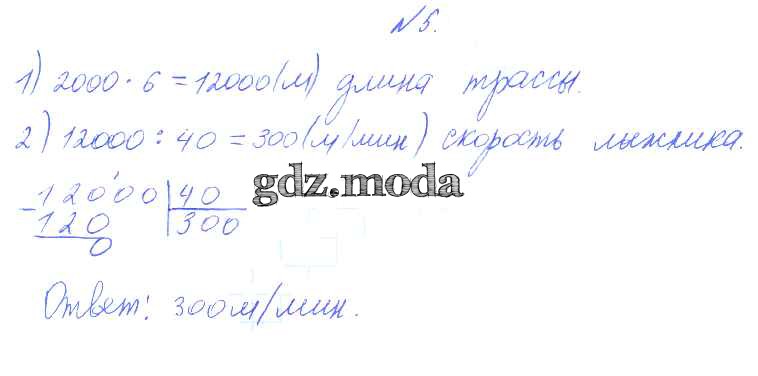 № 5.
1) 2000 · 6 = 12000 (м) длина трассы.
2) 12000 : 40 = 300 (м/мин) скорость лыжника.
12000 | 40
gdz.moda
- 120 | 300
0
Ответ: 300 м/мин.